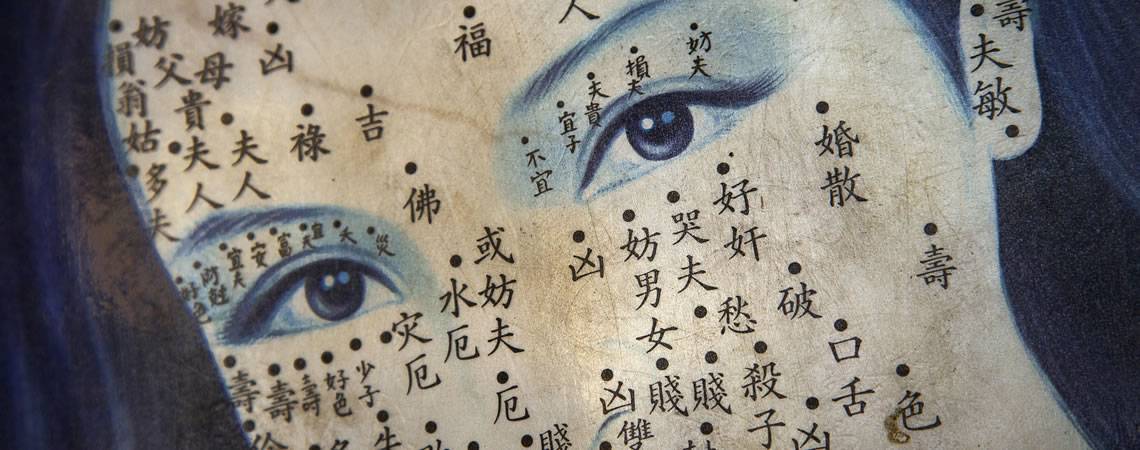 妨父貴夫人
嫁母
損翁姑
多夫
凶
夫人
祿
吉
福
人
佛
不宜
宜子
夫貴
損夫
妨夫
壽
夫敏
婚散
好奸
哭夫
妨男女
凶
或妨夫
水厄
灾厄
厄
愁
破
口舌
壽
色
殺子
賤
賤
凶
雙
凶
賤
宜夫
安
富
災
好色
壽
壽
壽
好色
少子